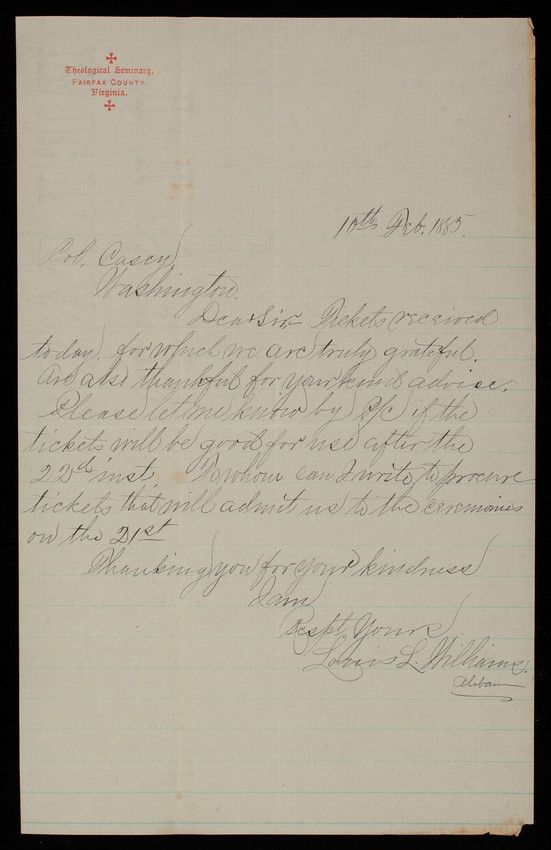 Theological Seminary.
Fairfax County.
Virginia.
10th Feb. 1885.
Col. Casey
Washington.
Dear Sir Tickets received
today, for which we are truly grateful.
Are also thankful for your kind advise.
Please let me know by P/c if the
tickets will be good for use after the
22d inst. To whom can I write, to procure
tickets that will admit us to the ceremonies
on the 21st
Thanking you for your kindness
I am
Respt. Yours
Louis L. Williams.